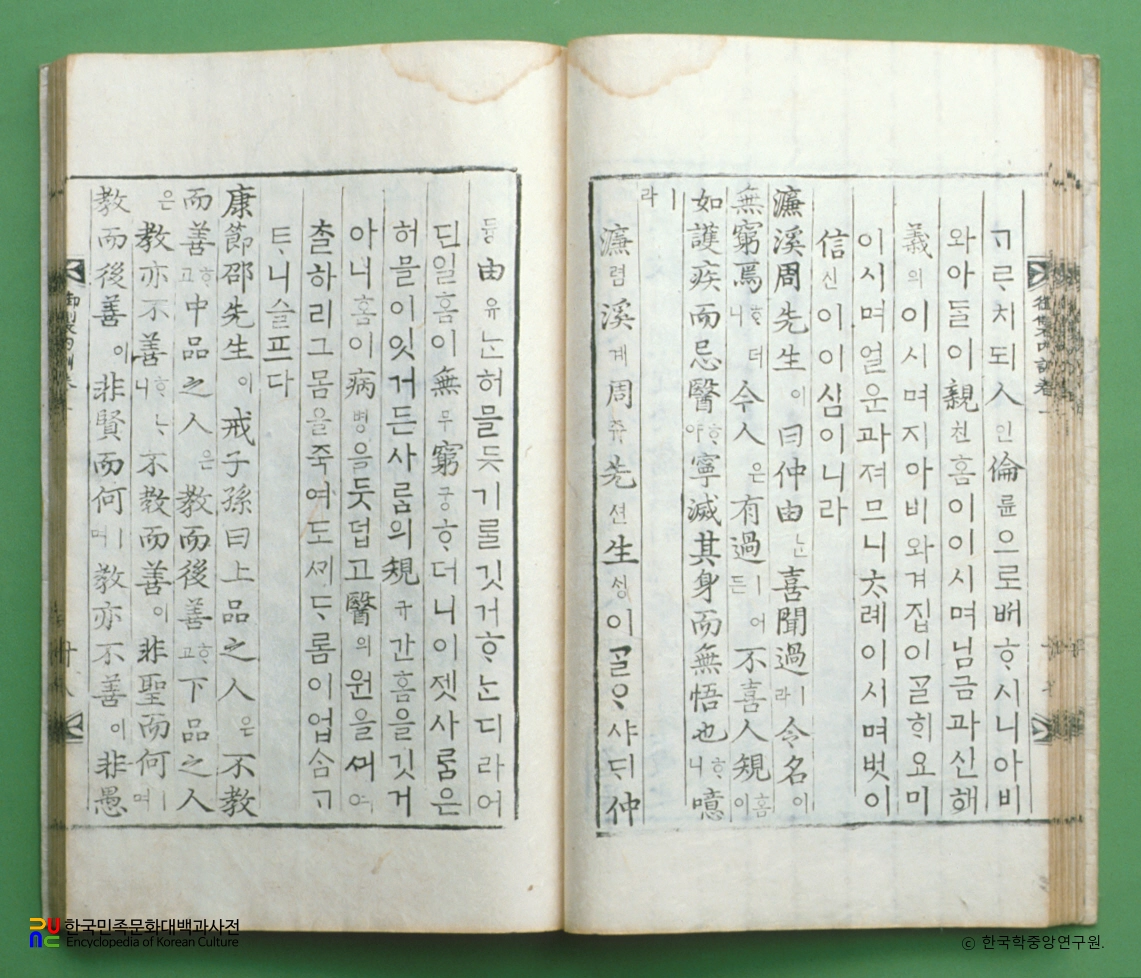 ᄀᆞᄅᆞ치되人인倫륜으로ᄡᅥᄒᆞ시니아비
와아ᄃᆞᆯ이親친홈이이시며님금과신해
義의이시며지아비와겨집이ᄀᆞᆯᄒᆡ요미
이시며얼운과져므니ᄎᆞ례이시며벗이
信신이이심이니라
濂溪周先生이曰仲由ᄂᆞᆫ喜聞過ㅣ라令名이
無窮焉ᄒᆞ더니今人은有過ㅣ어든不喜人規홈이
如護疾而忌醫ᄒᆞ야寧滅其身而無悟也ᄒᆞ니噫
ㅣ라
濂렴溪계周쥬先션生ᄉᆡᆼ이ᄀᆞᆯᄋᆞ샤ᄃᆡ仲
듕由유ᄂᆞᆫ허믈듯기ᄅᆞᆯ깃거ᄒᆞᄂᆞᆫ디라어
딘일홈이無무窮궁ᄒᆞ더니이젯사ᄅᆞᆷ은
허믈이잇거든사ᄅᆞᆷ의規규간홈을깃거
아니홈이病병을둣덥고醫의원을ᄭᅥ여
출하리그몸을죽여도ᄭᆡᄃᆞ롬이업ᄉᆞᆷᄀᆞ
ᄐᆞ니슬프다
康節邵先生이戒子孫曰上品之人은不教
而善ᄒᆞ고中品之人은教而後善ᄒᆞ고下品之人
은教亦不善ᄒᆞᄂᆞ니不教而善이非聖而何ㅣ며
教而後善이非賢而何ㅣ며教亦不善이非愚
御製內訓卷一
十八
한국민족문화대백과사전
Encyclopedia of Korean Culture
ⓒ 한국학중앙연구원.